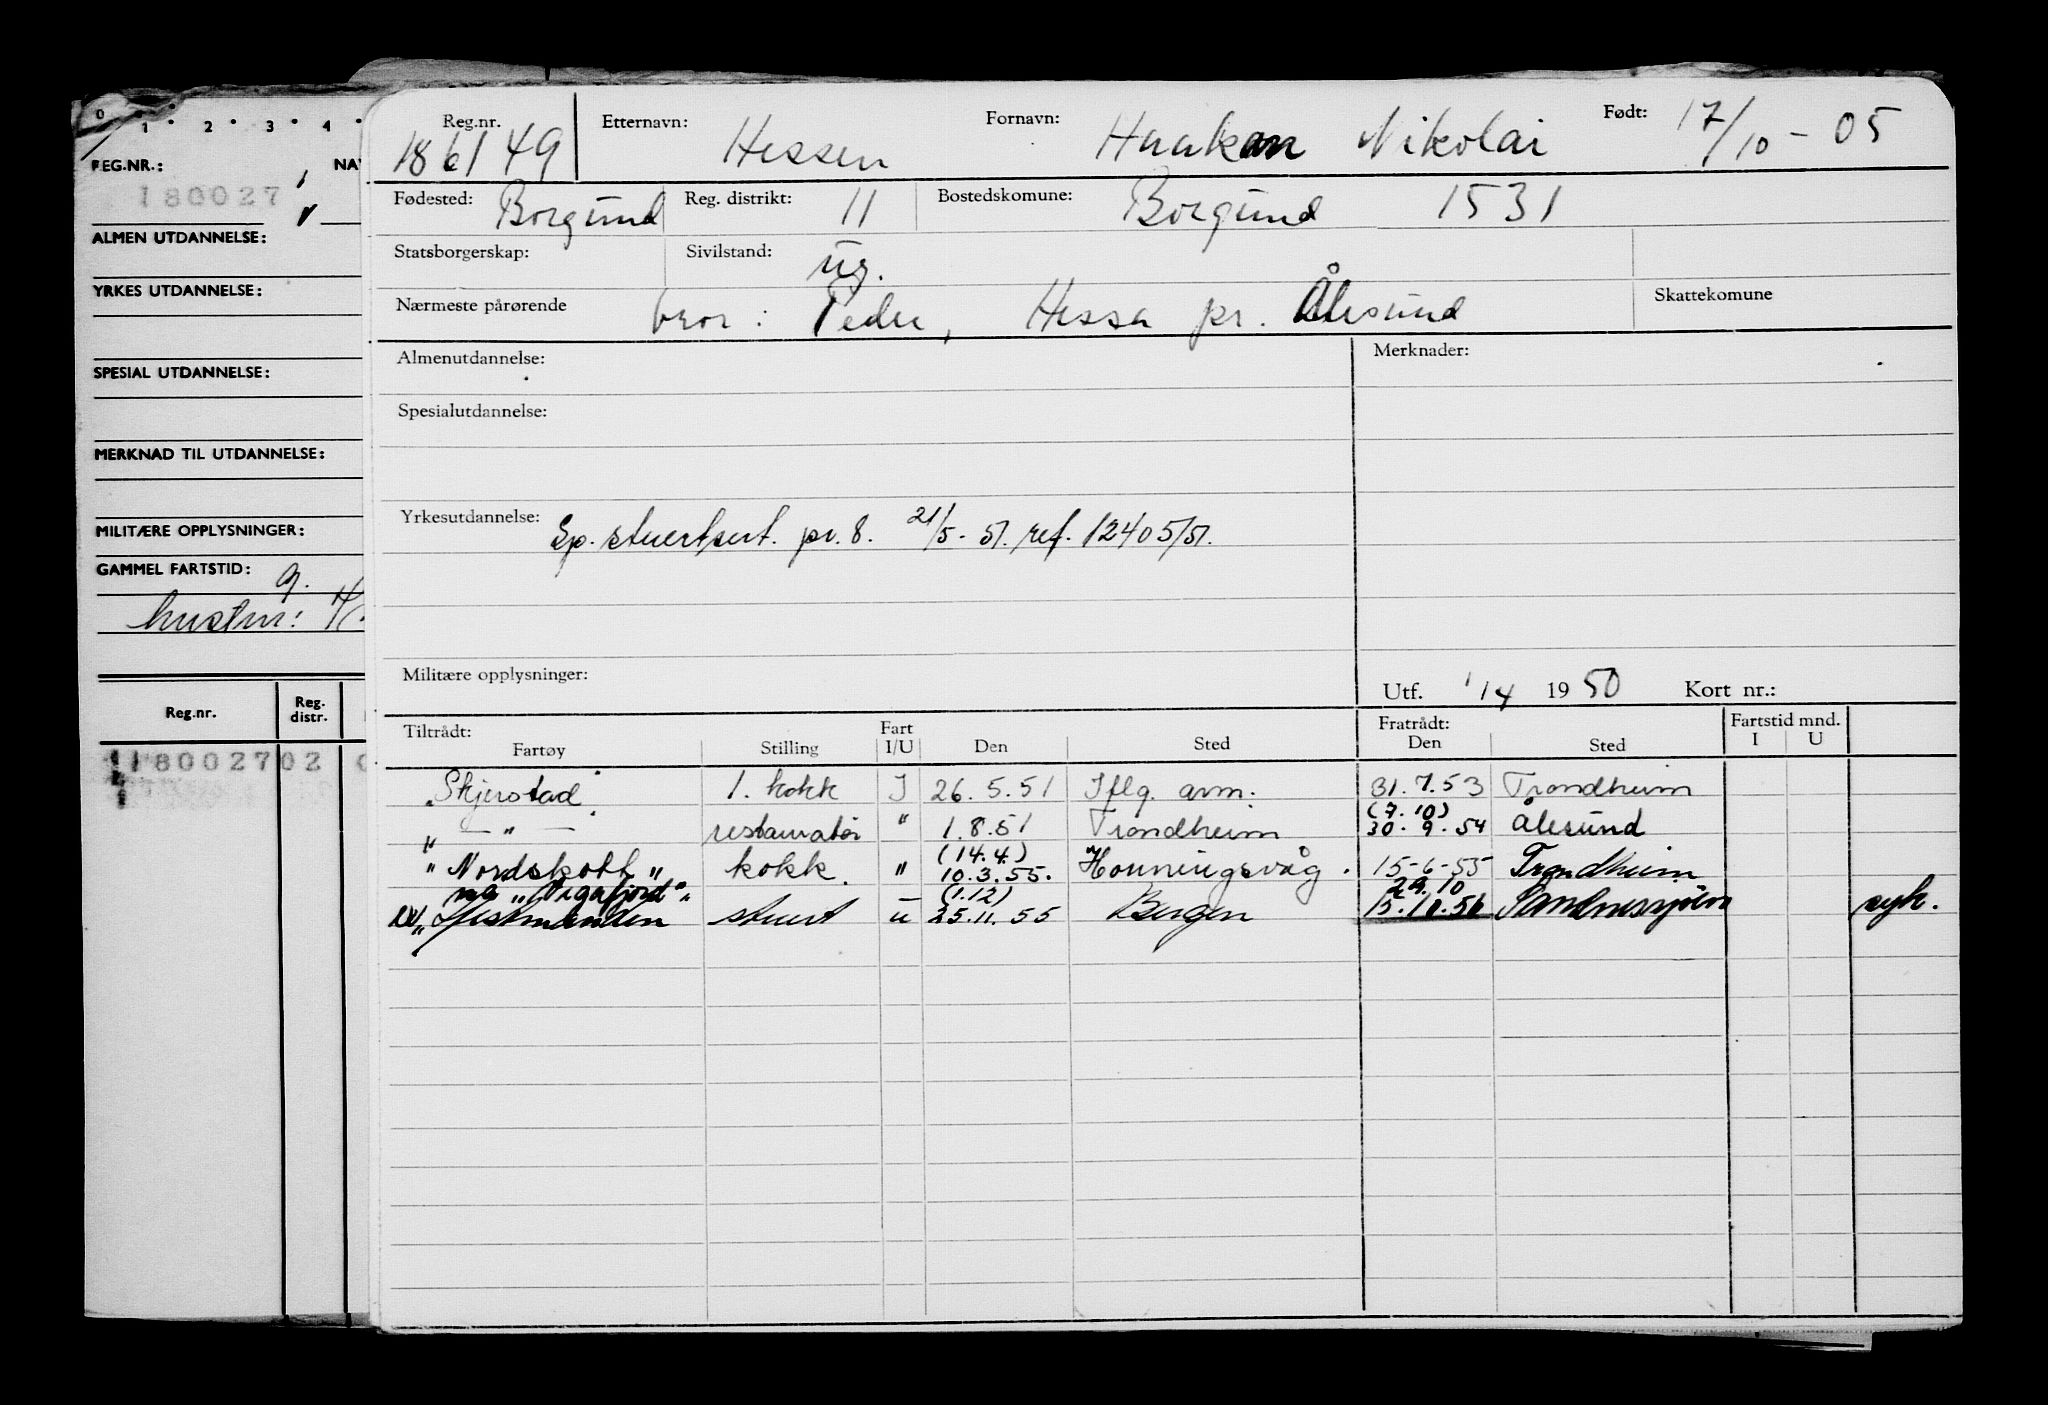 0 1 2 3 4
REG.NR.: NAV
180027
ALMEN UTDANNELSE:
YRKES UTDANNELSE:
SPESIAL UTDANNELSE:
MERKNAD TIL UTDANNELSE:
MILITÆRE OPPLYSNINGER:
GAMMEL FARTSTID: g.
hustru:
Reg.nr. Reg. distr.
18002702
Reg.nr. 186149 Etternavn: Hessen Fornavn: Haakon Nikolai Født: 17/10-05
Fødested: Borgund Reg. distrikt: 11 Bostedskomune: Borgund 1531
Statsborgerskap: Sivilstand: ug.
Nærmeste pårørende bror: Peder, Hessa pr. Ålesund Skattekomune
Almenutdannelse: Merknader:
Spesialutdannelse:
Yrkesutdannelse: Sp. stuertsert. pr. 8. 21/5-51. ref. 12405/51.
Militære opplysninger: Utf. 1/4 1950 Kort nr.:
Tiltrådt: Fartøy Stilling Fart I/U Den Sted Fratrådt: Den Sted Fartstid mnd. I U
"Skjerstad" 1. kokk I 26.5.51 Iflg. avm. 31.7.53 Trondheim
" — " — restauratør " 1.8.51 Trondheim (7.10) 30.9.54 Ålesund
"Nordskott" kokk. " (14.4.) 10.3.55. Honningsvåg. 15-6-55 Trondheim
nå "Vegafjord"
DS "Hestmanden stuert u (1.12) 25.11.55 Bergen 29.10 15.10.56 Sandnessjøen syk.